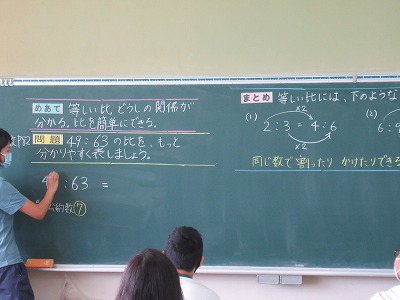 めあて 等しい比どうしの関係が
分かる。比を簡単にできる。
問題 49:63の比を、もっと
分かりやすく表しましょう。
:63 =
公約数⑦
まとめ 等しい比には、下のような
(1)
×2
2:3=4:6
×2
(2)
6:9
同じ数で割ったり かけたりできる